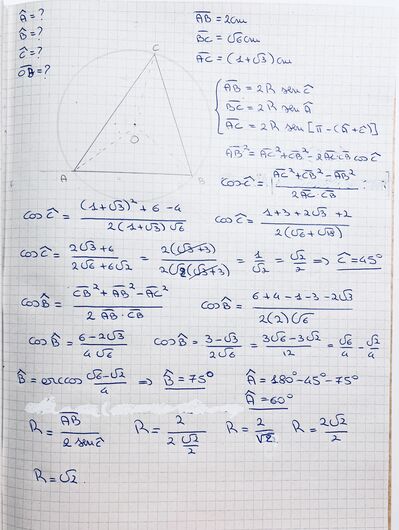 Â = ?
B̂ = ?
Ĉ = ?
O̅B̅ = ?
A̅B̅ = 2cm
B̅C̅ = √6cm
A̅C̅ = (1+√3)cm
C
O
A
B
A̅B̅ = 2R sen Ĉ
B̅C̅ = 2R sen Â
A̅C̅ = 2R sen [π-(Â+Ĉ)]
A̅B̅² = A̅C̅² + C̅B̅² - 2A̅C̅·C̅B̅ cos Ĉ
cos Ĉ = (A̅C̅² + C̅B̅² - A̅B̅²) / (2A̅C̅·C̅B̅)
cos Ĉ = ((1+√3)² + 6 - 4) / (2(1+√3)√6) cos Ĉ = (1+3+2√3+2) / (2(√6+√18))
cos Ĉ = (2√3+6) / (2√6+6√2) = 2(√3+3) / (2√2(√3+3)) = 1/√2 = √2/2 ⇒ Ĉ = 45°
cos B̂ = (C̅B̅² + A̅B̅² - A̅C̅²) / (2 A̅B̅·C̅B̅) cos B̂ = (6+4-1-3-2√3) / (2(2)√6)
cos B̂ = (6-2√3) / (4√6) cos B̂ = (3-√3) / (2√6) = (3√6-3√2) / 12 = √6/4 - √2/4
B̂ = arccos (√6-√2)/4 ⇒ B̂ = 75° Â = 180°-45°-75°
Â = 60°
R = A̅B̅ / (2 sen Ĉ) R = 2 / (2 √2/2) R = 2/√2 R = 2√2/2
R = √2.